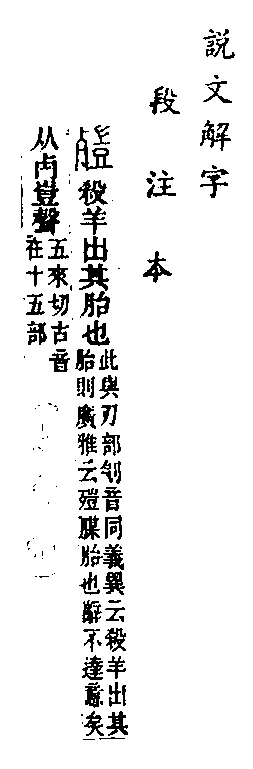 說文解字
段注本
殺羊出其胎也
此與刀部刏音同義異云殺羊出其
胎則廣雅云殰腜胎也辭不達意矣
从歺豈聲
五來切古音
在十五部